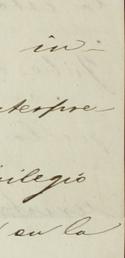 in-
nterpre-
vilegio
en la